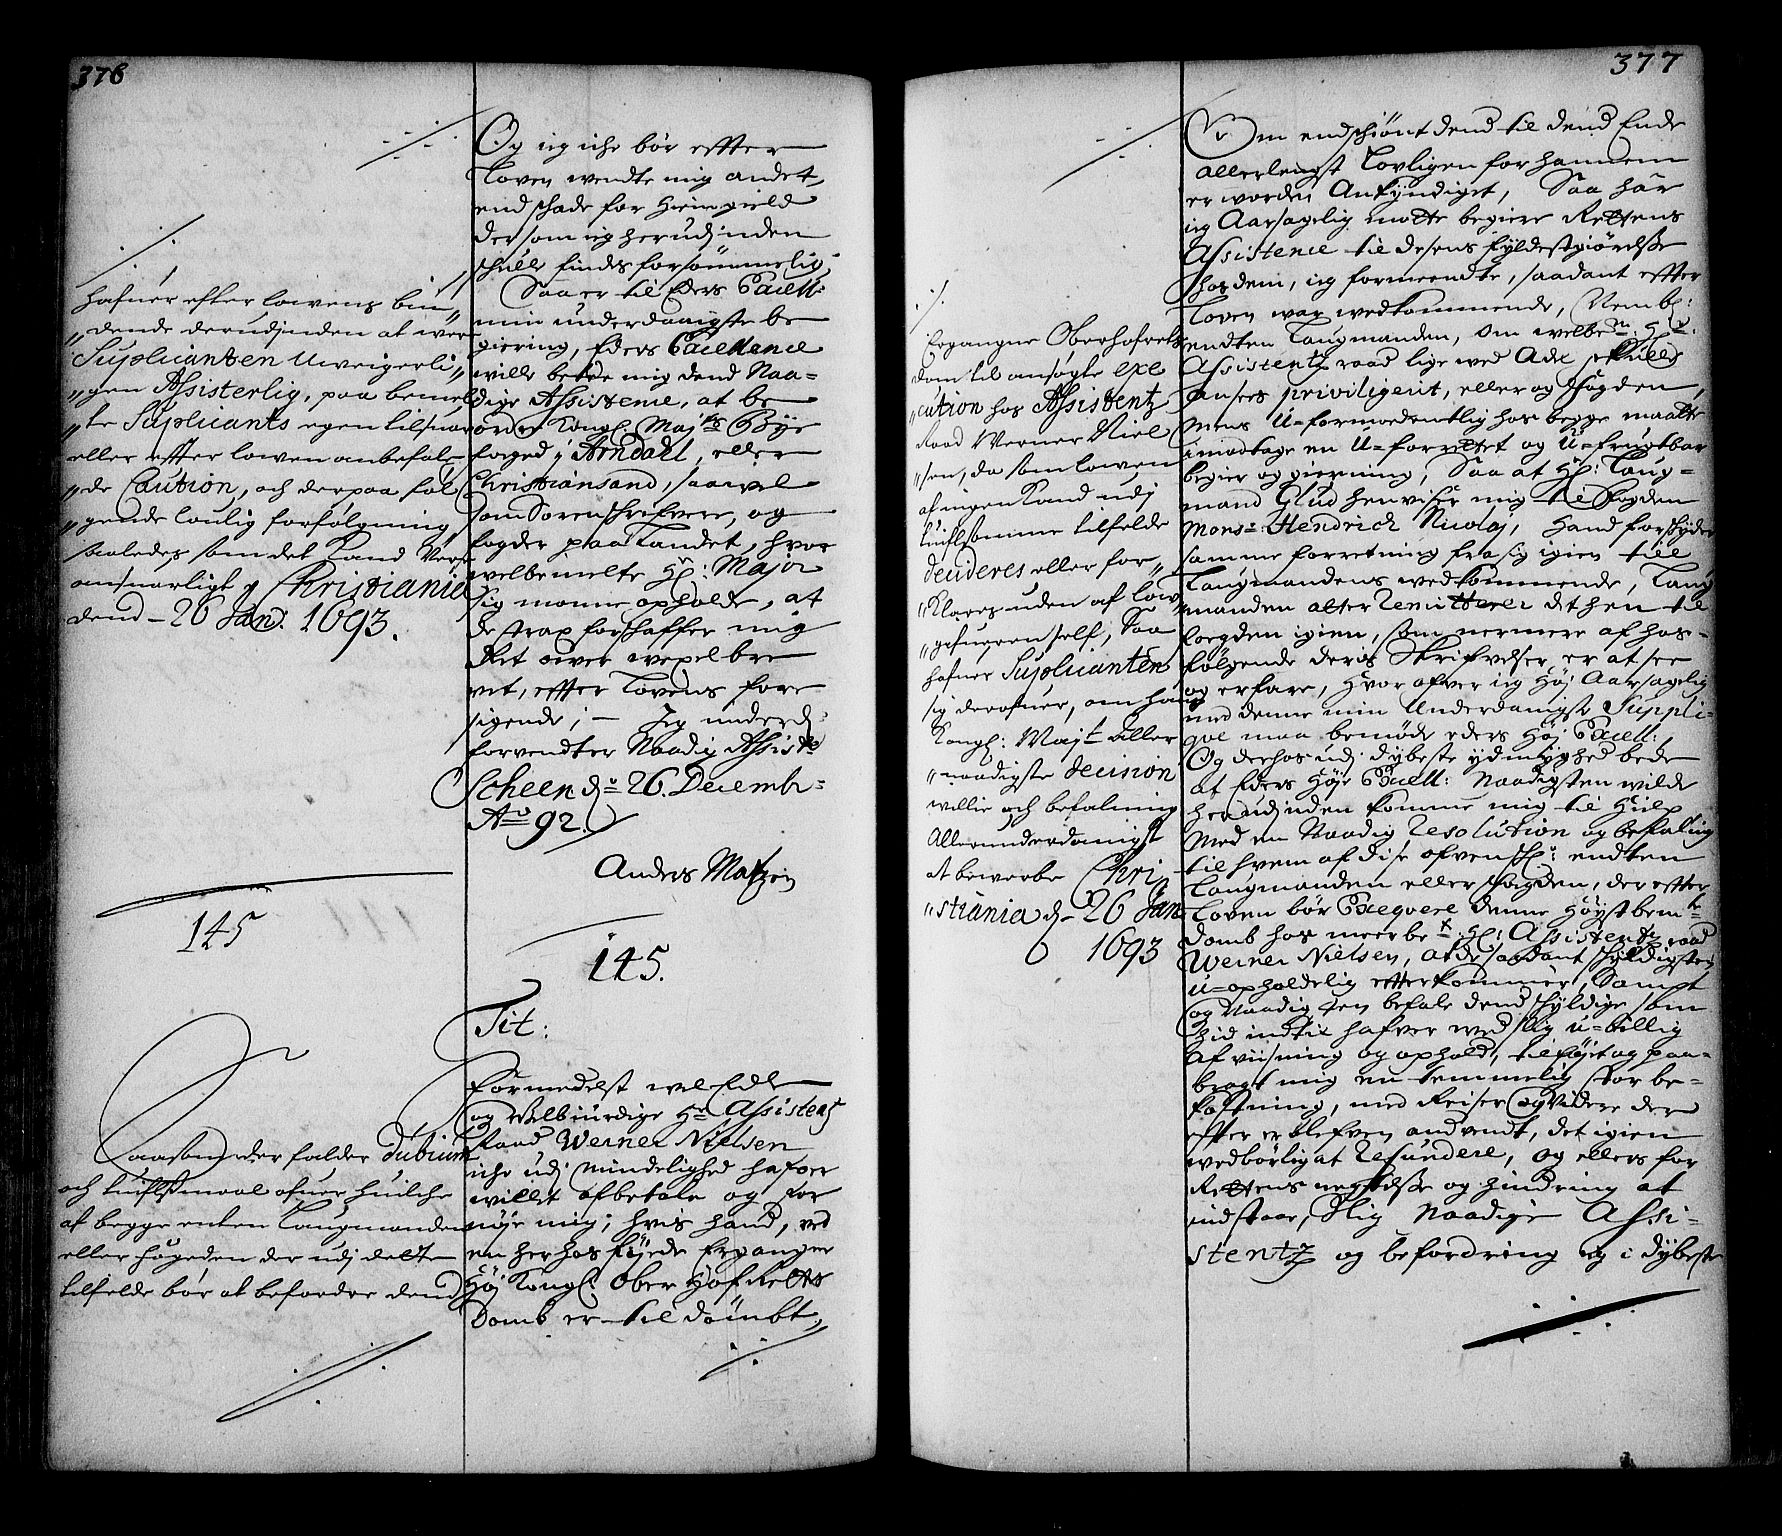 376
hafuer efter lowens bin„
„dende derudjinden at wer
Suplicanten Uweigerli„
„gen Assisterlig, paa bemel
„te Suplicants egen tilsuar
eller effter lowen anbefal„
„de Caution, och derpaa føl
„gende loulig forfølgning
saaledes som det Kand Vere
ansuarligt. Christiania
dend 26 Jan: 1693.
145
Saasom der falder dubium
och tuiflsmaal ofuer huilche
af begge enten Laugmanden
eller fogeden der udj dette
tilfelde bør at befordre dend
Og ieg iche bør effter
Loven wendte mig andet,
end schade for Hiemgield
dersom ieg herudjinden
schulle findes forsømmelig,
Saa er til Eders Excell:
min underdaanigste be
giering, Eders Excellence
wille betee mig dend Naa=
dige Assistence, at be
ordre Kongl: Maj:ts Bye
foged i Arndahl, eller
Christiansand, saavel
som Sorenschrifvere, og
fogder paa Landet, hvor
welbemelte Hr: Major
sig monne opholde, at
de strax forschaffer mig
Ret over wexel bre
vet, effter Lovens fore
sigende; – Jeg underd:
forventer Naadig Assiste
Scheen d: 26. Decembr=
Ao 92.
Anders Matzen
145.
Tit:
Formedelst wel Edle
og Velbiurdige Hr Assistentz
Raad Werner Nielsen
iche udj Mindelighed hafver
willet afbetale og for
nøje mig, hvis hand, ved
en herhos føjede Ergangne
Høj Kongl: Ober Hof Retts
Domb er til dømbt,
377
Ergangne Oberhofrets
dom til ansøgte exe
„cution hos Assistentz
Raad Werner Niel
„sen, da som lowen
af ingen Kand udj
tuiflsomme tilfelde
decideres eller for„
„Klares uden af Low
„gifueren self, Saa
hafuer Suplicanten
sig derofuer, om hans
Kongl: Majt aller
„naadigste decision
willie och befalning
Allerunderdanigst
at bewerbe Chri„
„stiania d– 26 Jan
1693
Om endschiønt dend til dend Ende
allerlengst Lovligen for hannem
er worden Ankyndiget, Saa har
ieg Aarsagelig motte begiere Rettens
Assistence til desens fyldestgiørelse
hos dem, ieg formeendte, saadant effter
Loven war wedkommende, Nembl:
endten Laugmanden, om welbe:n Hr:
Assistentz raad lige wed Adel skulle
ansees priviligerit, eller og fogden,
Mens U=formodentlig hos begge maatte
imodtage en U=forrettet og U=frugtbar
begier og giering, Saa at Hr: Laug=
mand Glud henviser mig til fogden
Mons: Hendrich Nicolaj, Hand forskyder
samme forretning fra sig igien till
Laugmandens wedkommende, Laug
manden atter remitterer det hen til
foegden igien, som nermere af hos=
følgende deris Skrifvelser er at see
og erfare, Hvor ofver ieg Høj Aarsagelig
med denne min Underdanigste Suppli=
qve maa bemøde eders Høj Excell:
Og derhos udj dybeste ydmyghed bede
at Eders Høje Excell: Naadigsten wilde
herudjinden komme mig til Hielp
Med en Naadig resolution og befaling
til hvem af dise ofvenschr: endten
Laugmanden eller fogden, der effter
Loven bør Exeqvere denne Høystbem:te
domb hos meerbe:t Hr: Assistentz raad
Werner Nielsen, at de saadant schyldigsten
U=opholdelig effterkommer, Sampt
og Naadigsten befale dend schyldige som
hid indtil hafver wed slig U=billig
Afviisning og ophold, tilføjet og paa=
bragt mig en temmelig stor be=
kostning, med Reiser og Videre der
effter er blefven andvendt, det igien
wedbørlig at refundere, og ellers for
Rettens negtelse og hindring at
indstaae, Slig Naadige Assi=
stentz og befordring ieg i dybeste